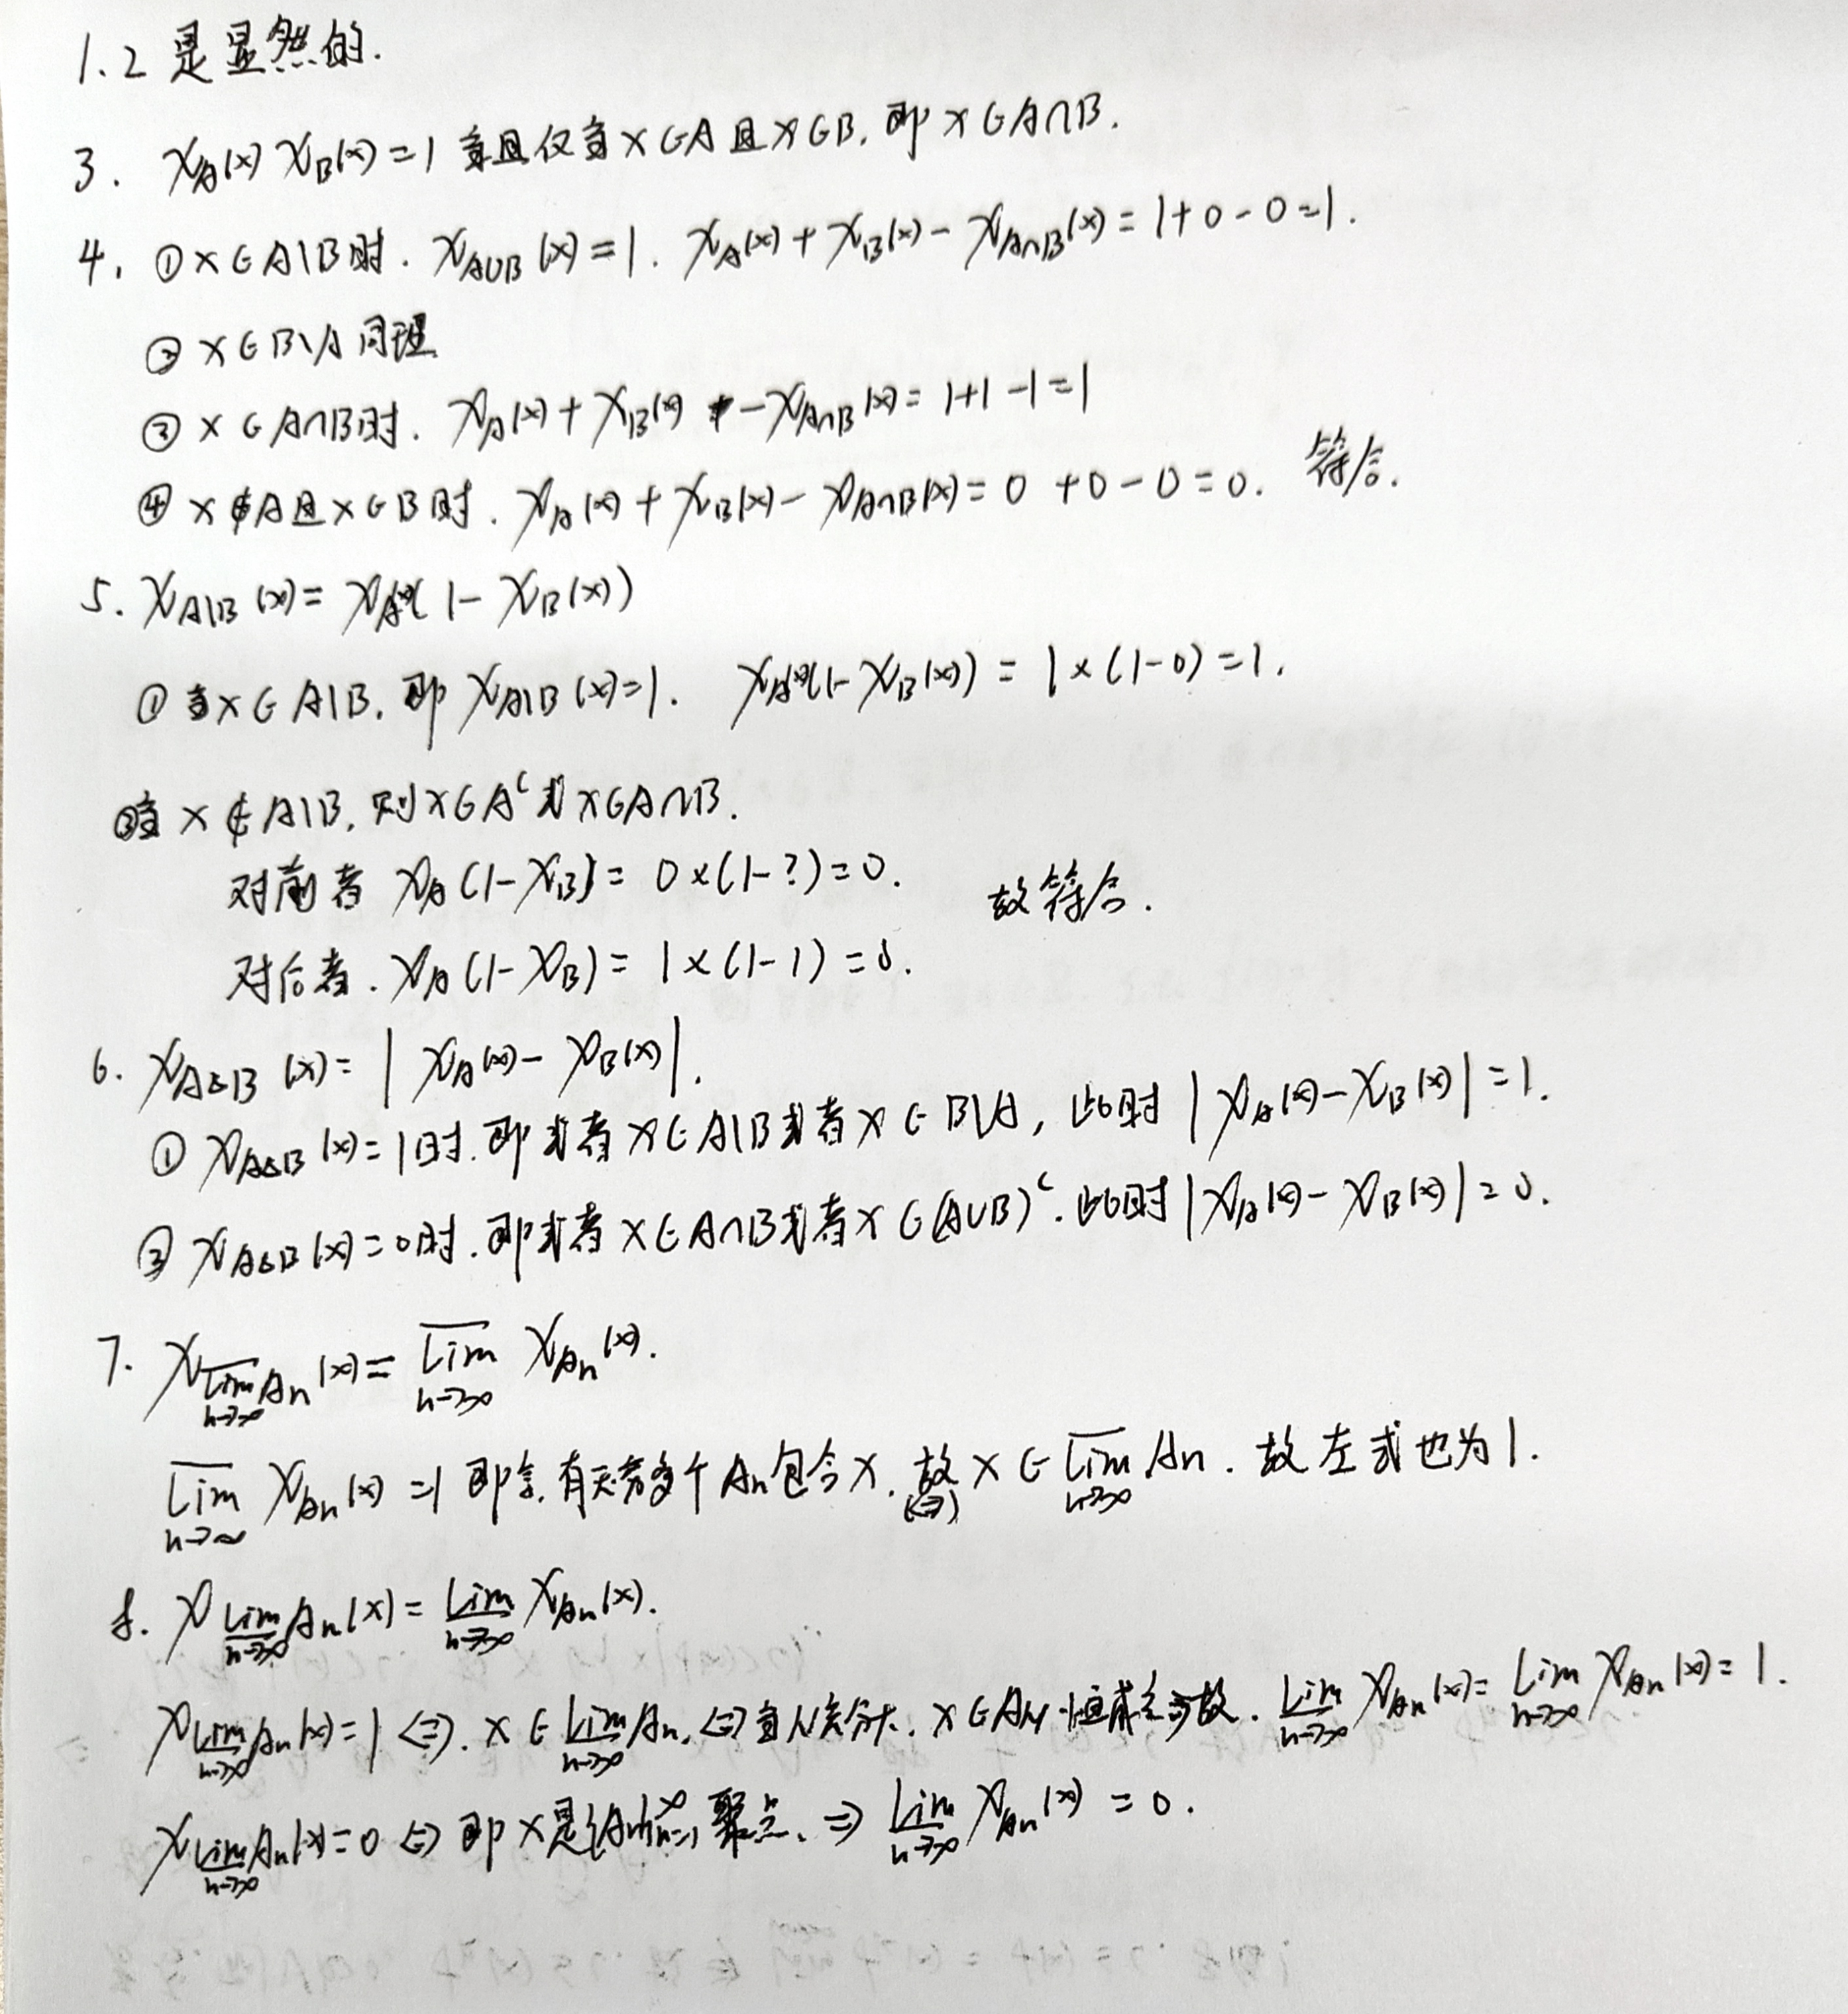 1.2 是显然的.
3. χ_A(x) χ_B(x) = 1 当且仅当 x∈A 且 x∈B, 即 x∈A∩B.
4. ① x∈A\B时. χ_{A∪B}(x) = 1. χ_A(x) + χ_B(x) - χ_{A∩B}(x) = 1+0-0=1.
② x∈B\A 同理
③ x∈A∩B时. χ_A(x) + χ_B(x) - χ_{A∩B}(x) = 1+1-1=1
④ x∉A且x∈B时. χ_A(x) + χ_B(x) - χ_{A∩B}(x) = 0+0-0=0. 符合.
5. χ_{A\B}(x) = χ_A(x)(1-χ_B(x))
① 当x∈A\B, 即 χ_{A\B}(x)=1. χ_A(x)(1-χ_B(x)) = 1×(1-0)=1.
②当 x∉A\B, 则x∈A^c或x∈A∩B.
对前者 χ_A(1-χ_B) = 0×(1-?)=0. 故符合.
对后者. χ_A(1-χ_B) = 1×(1-1)=0.
6. χ_{A△B}(x) = |χ_A(x) - χ_B(x)|.
① χ_{A△B}(x)=1时. 即或者x∈A\B或者x∈B\A, 此时|χ_A(x)-χ_B(x)|=1.
② χ_{A△B}(x)=0时. 即或者x∈A∩B或者x∈(A∪B)^c. 此时|χ_A(x)-χ_B(x)|=0.
7. χ_{\overline{lim}_{n→∞} A_n}(x) = \overline{lim}_{n→∞} χ_{A_n}(x).
\overline{lim}_{n→∞} χ_{A_n}(x) =1 即 有无穷多个A_n包含x. 故(⇔) x∈\overline{lim}_{n→∞} A_n. 故左式也为1.
8. χ_{\underline{lim}_{n→∞} A_n}(x) = \underline{lim}_{n→∞} χ_{A_n}(x).
χ_{\underline{lim}_{n→∞} A_n}(x)=1 ⇔. x∈\underline{lim}_{n→∞} A_n. ⇔当N充分大. x∈A_N 恒成立 故. \underline{lim}_{n→∞} χ_{A_n}(x) = lim_{n→∞} χ_{A_n}(x) = 1.
χ_{\underline{lim}_{n→∞} A_n}(x)=0 ⇔ 即x是{A_n}_{n=1}^∞ 聚点. ⇒ \underline{lim}_{n→∞} χ_{A_n}(x) = 0.